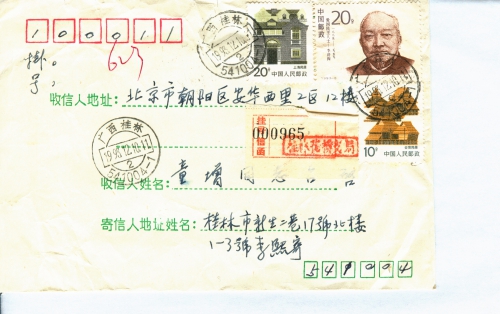 1 0 0 0 1 1
20分 中国邮政
挂号。
623
20分 中国人民邮政
广西桂林 2 541004-1
收信人地址: 北京市朝阳区安华西里2区12楼
10分 中国人民邮政
挂信函 000965
广西桂林 19 95.12.10.11 2 541004-1
收信人姓名: 童增
寄信人地址姓名: 桂林市新生二巷17號北楼
1-3號李熙
541004